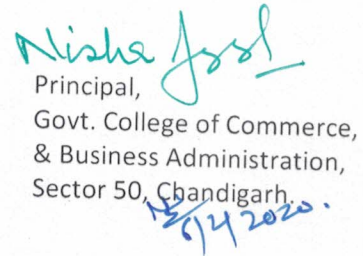 Nisha
Principal,
Govt. College of Commerce,
& Business Administration,
Sector 50, Chandigarh.
6/4/2020.